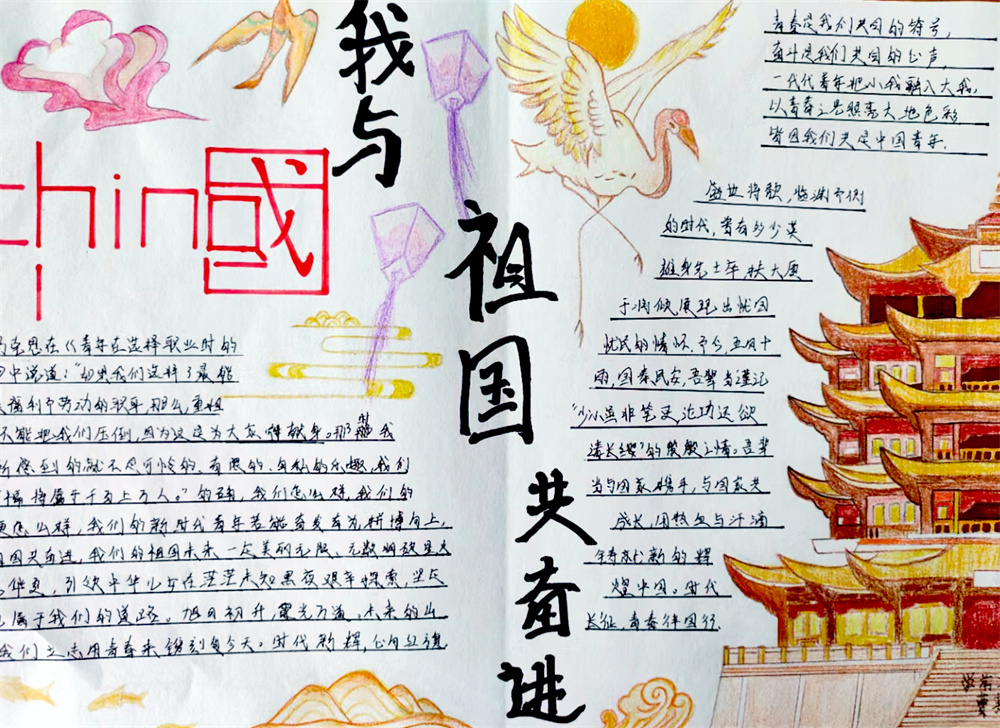 我与
祖国
共奋进
chin國
青春是我们共同的符号，
奋斗是我们共同的心声，
一代代青年把小我融入大我，
以青春之光照亮大地色彩
皆因我们共是中国青年.
盛世将歌，临渊不侧
的时代，曾有多少英
雄身先士卒，扶大厦
于将倾展现出忧国
忧民的情怀.今,五风十
雨,国泰民安,吾辈当谨记
"少小虽非笔吏,论功还欲
请长缨"的殷殷之情。吾辈
当与国家携手,与国家共
成长,用热血与汗滴
铸就新的辉
煌中国。时代
长征,青春伴国行.
马克思在《青年在选择职业时的
中说道："如果我们选择了最能
福利而劳动的职业，那么，重担
不能把我们压倒,因为这是为大家而献身。那时我
所感到的就不是可怜的、有限的、自私的乐趣,我们
幸福将属于千百上万人。"的确，我们怎么样，我们的
便怎么样，我们的新时代青年若能奋发有为,拼搏向上,
祖国共奋进，我们的祖国未来一定美丽无限、无数明故星火
华夏，引领中华儿女在茫茫未知黑夜艰辛探索，坚定
属于我们的道路。旭日初升，霞光万道、未来的山
我们立志用青春来镌刻每今天。时代新辉，心向红旗